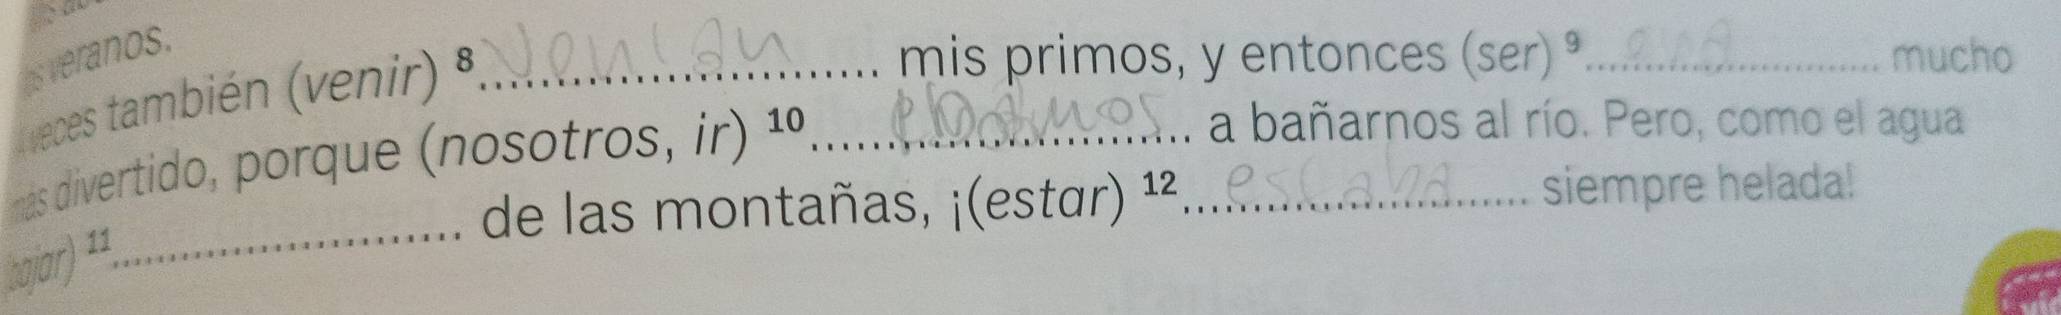 veranos.
veces también (venir) ⁸ venian mis primos, y entonces (ser) ⁹ era mucho
más divertido, porque (nosotros, ir) ¹⁰ a bañarnos al río. Pero, como el agua
(bajar) ¹¹ de las montañas, ¡(estar) ¹² estaba siempre helada!